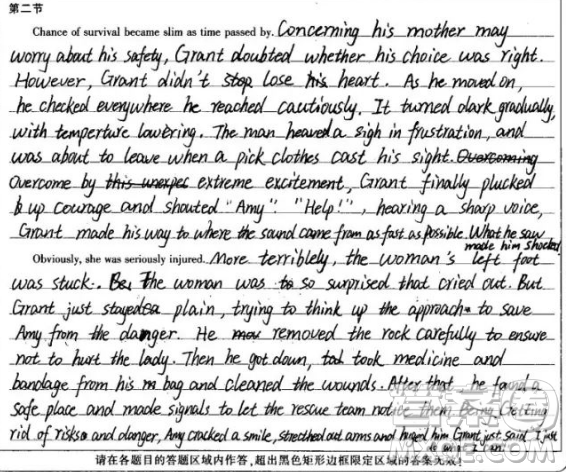 第二节
Chance of survival became slim as time passed by. Concerning his mother may
worry about his safety, Grant doubted whether his choice was right.
However, Grant didn't stop lose his heart. As he moved on,
he checked everywhere he reached cautiously. It turned dark gradually,
with temperture lowering. The man heaved a sigh in frustration, and
was about to leave when a pick clothes cast his sight. Overcoming
Overcome by this unexpec extreme excitement, Grant finally plucked
up courage and shouted "Amy". "Help!", hearing a sharp voice,
Grant made his way to where the sound came from as fast as possible. What he saw
made him shocked
Obviously, she was seriously injured. More terriblely, the woman's left foot
was stuck. Be. The woman was to so surprised that cried out. But
Grant just stayed a plain, trying to think up the approach to save
Amy from the danger. He mov removed the rock carefully to ensure
not to hurt the lady. Then he got down, took medicine and
bandage from his bag and cleaned the wounds. After that he found a
safe place and made signals to let the rescue team notice them. Being Getting
rid of risks and danger, Amy cracked a smile, strecthed out arms and huged him. Grant just said "I just
请在各题目的答题区域内作答,超出黑色矩形边框限定区域的答案无效!